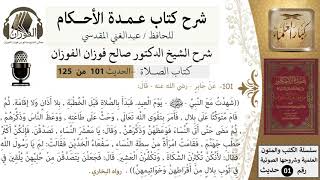 شرح كتاب عمدة الأحكام
للحافظ / عبدالغني المقدسي
شرح الشيخ الدكتور صالح فوزان الفوزان
كتاب الصلاة - الحديث 101 من 125
101- عن جابر - رضي الله عنه - قال:
((شهدت مع النبي ﷺ - يوم العيد، فبدأ بالصلاة قبل الخطبة، بلا أذان ولا إقامة، ثم
قام متوكئًا على بلال، فأمر بتقوى الله تعالى، وحث على طاعته، ووعظ الناس وذكرهم،
ثم مضى حتى أتى النساء فوعظهن وذكرهن، فقال: يا معشر النساء، تصدقن، فإنكن أكثر
حطب جهنم، فقامت امرأة من سطة النساء، سفعاء الخدين، فقالت: لم يا رسول الله
فقال: لأنكن تكثرن الشكاة، وتكفرن العشير. قال: فجعلن يتصدقن من حليهن يلقين في
ثوب بلال من أقراطهن وخواتيمهن)). رواه البخاري.
الفوزان
كبار العلماء
سلسلة الكتب والمتون
العلمية وشروحها الصوتية
رقم 01 حديث